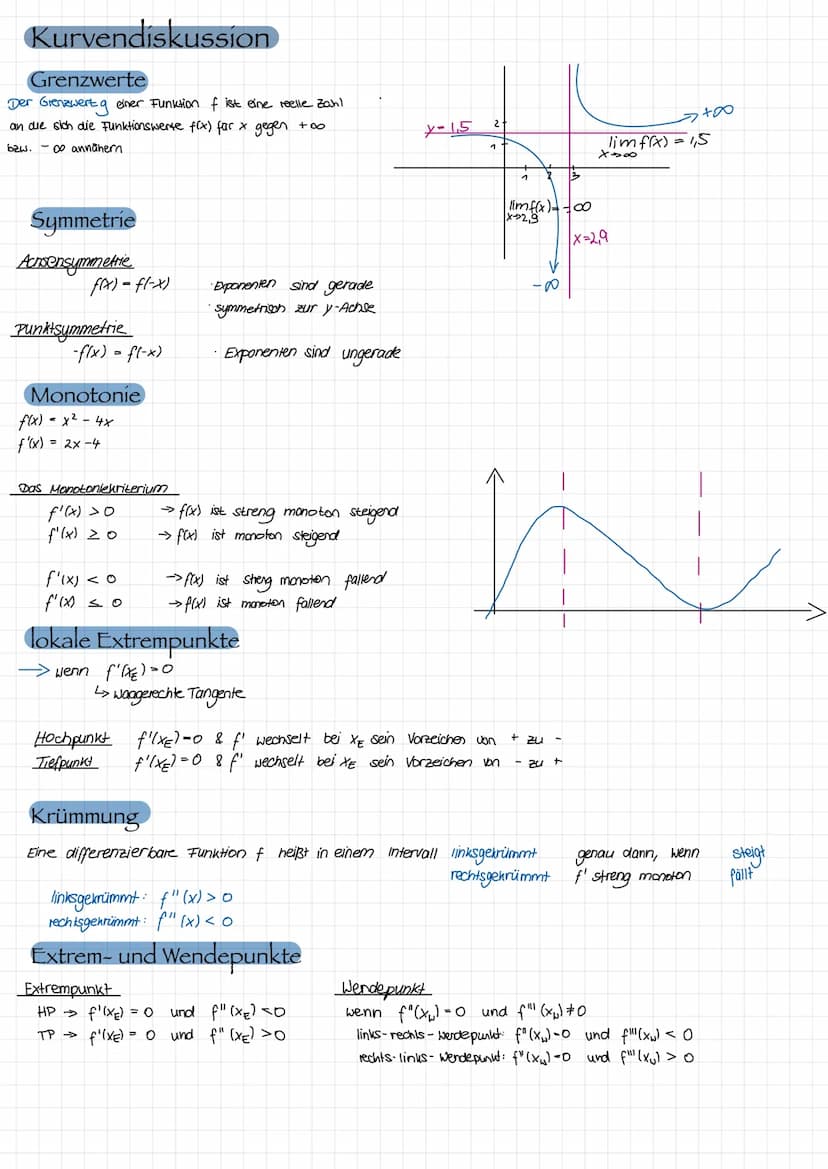 Kurvendiskussion
Grenzwerte
Der Grenzwert g einer Funktion f ist eine reelle Zahl
an die sich die Funktionswerte f(x) für x gegen +∞
bzw. -∞ annähern
y=1,5
2
1
1
2
3
→+∞
lim f(x) = 1,5
x→∞
lim f(x) = -∞
x→2,9
x=2,9
-∞
Symmetrie
Achsensymmetrie
f(x) = f(-x)
· Exponenten sind gerade
· symmetrisch zur y-Achse
Punktsymmetrie
-f(x) = f(-x)
· Exponenten sind ungerade
Monotonie
f(x) = x² - 4x
f'(x) = 2x - 4
Das Monotoniekriterium
f'(x) > 0 → f(x) ist streng monoton steigend
f'(x) ≥ 0 → f(x) ist monoton steigend
f'(x) < 0 → f(x) ist streng monoton fallend
f'(x) ≤ 0 → f(x) ist monoton fallend
lokale Extrempunkte
→ wenn f'(x_E) = 0
↳ waagerechte Tangente
Hochpunkt f'(x_E) = 0 & f' wechselt bei x_E sein Vorzeichen von + zu -
Tiefpunkt f'(x_E) = 0 & f' wechselt bei x_E sein Vorzeichen von - zu +
Krümmung
Eine differenzierbare Funktion f heißt in einem Intervall linksgekrümmt genau dann, wenn steigt
rechtsgekrümmt f' streng monoton fällt
linksgekrümmt: f''(x) > 0
rechtsgekrümmt: f''(x) < 0
Extrem- und Wendepunkte
Extrempunkt
HP → f'(x_E) = 0 und f''(x_E) < 0
TP → f'(x_E) = 0 und f''(x_E) > 0
Wendepunkt
wenn f''(x_w) = 0 und f'''(x_w) ≠ 0
links-rechts-Wendepunkt: f''(x_w) = 0 und f'''(x_w) < 0
rechts-links-Wendepunkt: f''(x_w) = 0 und f'''(x_w) > 0